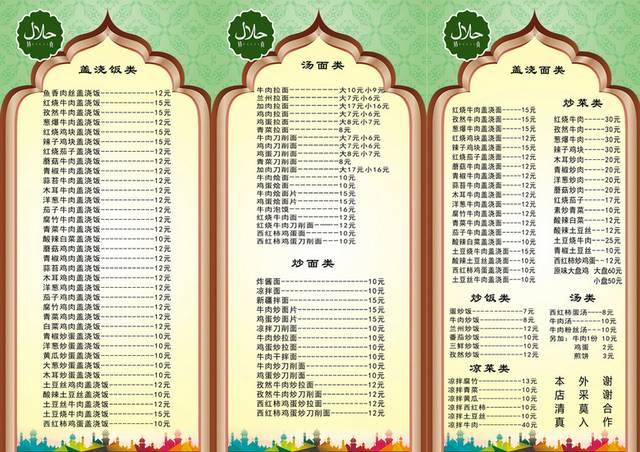 حلال
清真
盖浇饭类
鱼香肉丝盖浇饭------------12元
红烧牛肉盖浇饭------------15元
孜然牛肉盖浇饭------------15元
葱爆牛肉盖浇饭------------15元
红烧鸡块盖浇饭------------15元
辣子鸡块盖浇饭------------15元
红烧茄子盖浇饭------------12元
蘑菇牛肉盖浇饭------------12元
青椒牛肉盖浇饭------------12元
蒜苔牛肉盖浇饭------------12元
木耳牛肉盖浇饭------------12元
洋葱牛肉盖浇饭------------12元
茄子牛肉盖浇饭------------12元
腐竹牛肉盖浇饭------------12元
青菜牛肉盖浇饭------------12元
酸辣白菜盖浇饭------------12元
蘑菇鸡肉盖浇饭------------12元
青椒鸡肉盖浇饭------------12元
蒜苔鸡肉盖浇饭------------12元
木耳鸡肉盖浇饭------------12元
洋葱鸡肉盖浇饭------------12元
茄子鸡肉盖浇饭------------12元
腐竹鸡肉盖浇饭------------12元
青菜鸡肉盖浇饭------------12元
白菜鸡肉盖浇饭------------12元
青椒炒蛋盖浇饭------------12元
洋葱炒蛋盖浇饭------------12元
黄瓜炒蛋盖浇饭------------12元
大葱炒蛋盖浇饭------------12元
木耳炒蛋盖浇饭------------12元
土豆丝鸡肉盖浇饭----------12元
酸辣土豆丝盖浇饭----------12元
土豆丝牛肉盖浇饭----------12元
土豆烧牛肉盖浇饭----------12元
西红柿鸡蛋盖浇饭----------12元
حلال
清真
汤面类
牛肉拉面----------大10元小9元
兰州拉面----------大7元小6元
加肉拉面----------大17元小16元
鸡肉拉面----------大7元小6元
鸡蛋拉面----------大8元小7元
青菜拉面----------8元
牛肉刀削面--------大7元小6元
鸡肉刀削面--------大7元小6元
鸡蛋刀削面--------大8元小7元
青菜刀削面--------8元
加肉刀削面--------大17元小16元
牛肉烩面----------10元
鸡蛋烩面----------10元
牛肉烩面片--------15元
鸡蛋烩面片--------15元
牛肉泡馍----------16元
红烧牛肉面--------12元
红烧牛肉刀削面----12元
西红柿鸡蛋面------10元
西红柿鸡蛋刀削面--10元
炒面类
炸酱面------------10元
凉拌面------------10元
新疆拌面----------15元
牛肉炒面片--------10元
鸡蛋炒面片--------10元
凉拌刀削面--------10元
牛肉炒拉面--------10元
鸡蛋炒拉面--------10元
牛肉干拌面--------10元
牛肉炒刀削面------10元
鸡蛋炒刀削面------10元
孜然牛肉炒拉面----12元
孜然牛肉炒刀削面--12元
西红柿鸡蛋炒拉面--12元
西红柿鸡蛋炒刀削面--12元
حلال
清真
盖浇面类
红烧牛肉盖浇面----15元
孜然牛肉盖浇面----15元
葱爆牛肉盖浇面----15元
红烧鸡块盖浇面----15元
辣子鸡块盖浇面----15元
红烧茄子盖浇面----12元
蘑菇牛肉盖浇面----12元
青椒牛肉盖浇面----12元
蒜苔牛肉盖浇面----12元
木耳牛肉盖浇面----12元
洋葱牛肉盖浇面----12元
茄子牛肉盖浇面----12元
腐竹牛肉盖浇面----12元
青菜牛肉盖浇面----12元
酸辣白菜盖浇面----12元
土豆烧牛肉盖浇面--15元
酸辣土豆丝盖浇面--12元
西红柿鸡蛋盖浇面--12元
土豆丝牛肉盖浇面--12元
炒菜类
红烧牛肉-----30元
孜然牛肉-----30元
葱爆牛肉-----30元
辣子鸡块-----30元
木耳炒肉-----20元
青椒炒肉-----20元
洋葱炒肉-----20元
蘑菇炒肉-----20元
红烧茄子-----17元
素炒青菜-----10元
酸辣白菜-----12元
酸辣土豆丝---12元
土豆烧牛肉---25元
西红柿炒鸡蛋--12元
原味大盘鸡 大盘60元
小盘50元
炒饭类
蛋炒饭------------7元
牛肉炒饭----------8元
兰州炒饭----------12元
番茄炒饭----------10元
三鲜炒饭----------10元
孜然炒饭----------12元
凉菜类
凉拌腐竹----------13元
凉拌青菜----------10元
凉拌黄瓜----------10元
凉拌西红柿--------10元
凉拌土豆丝--------10元
凉拌牛肉----------40元
汤类
西红柿蛋汤---8元
牛肉汤-------10元
牛肉粉丝汤---10元
另加:牛肉1份 10元
鸡蛋 2元
煎饼 3元
本店清真
外采莫入
谢谢合作